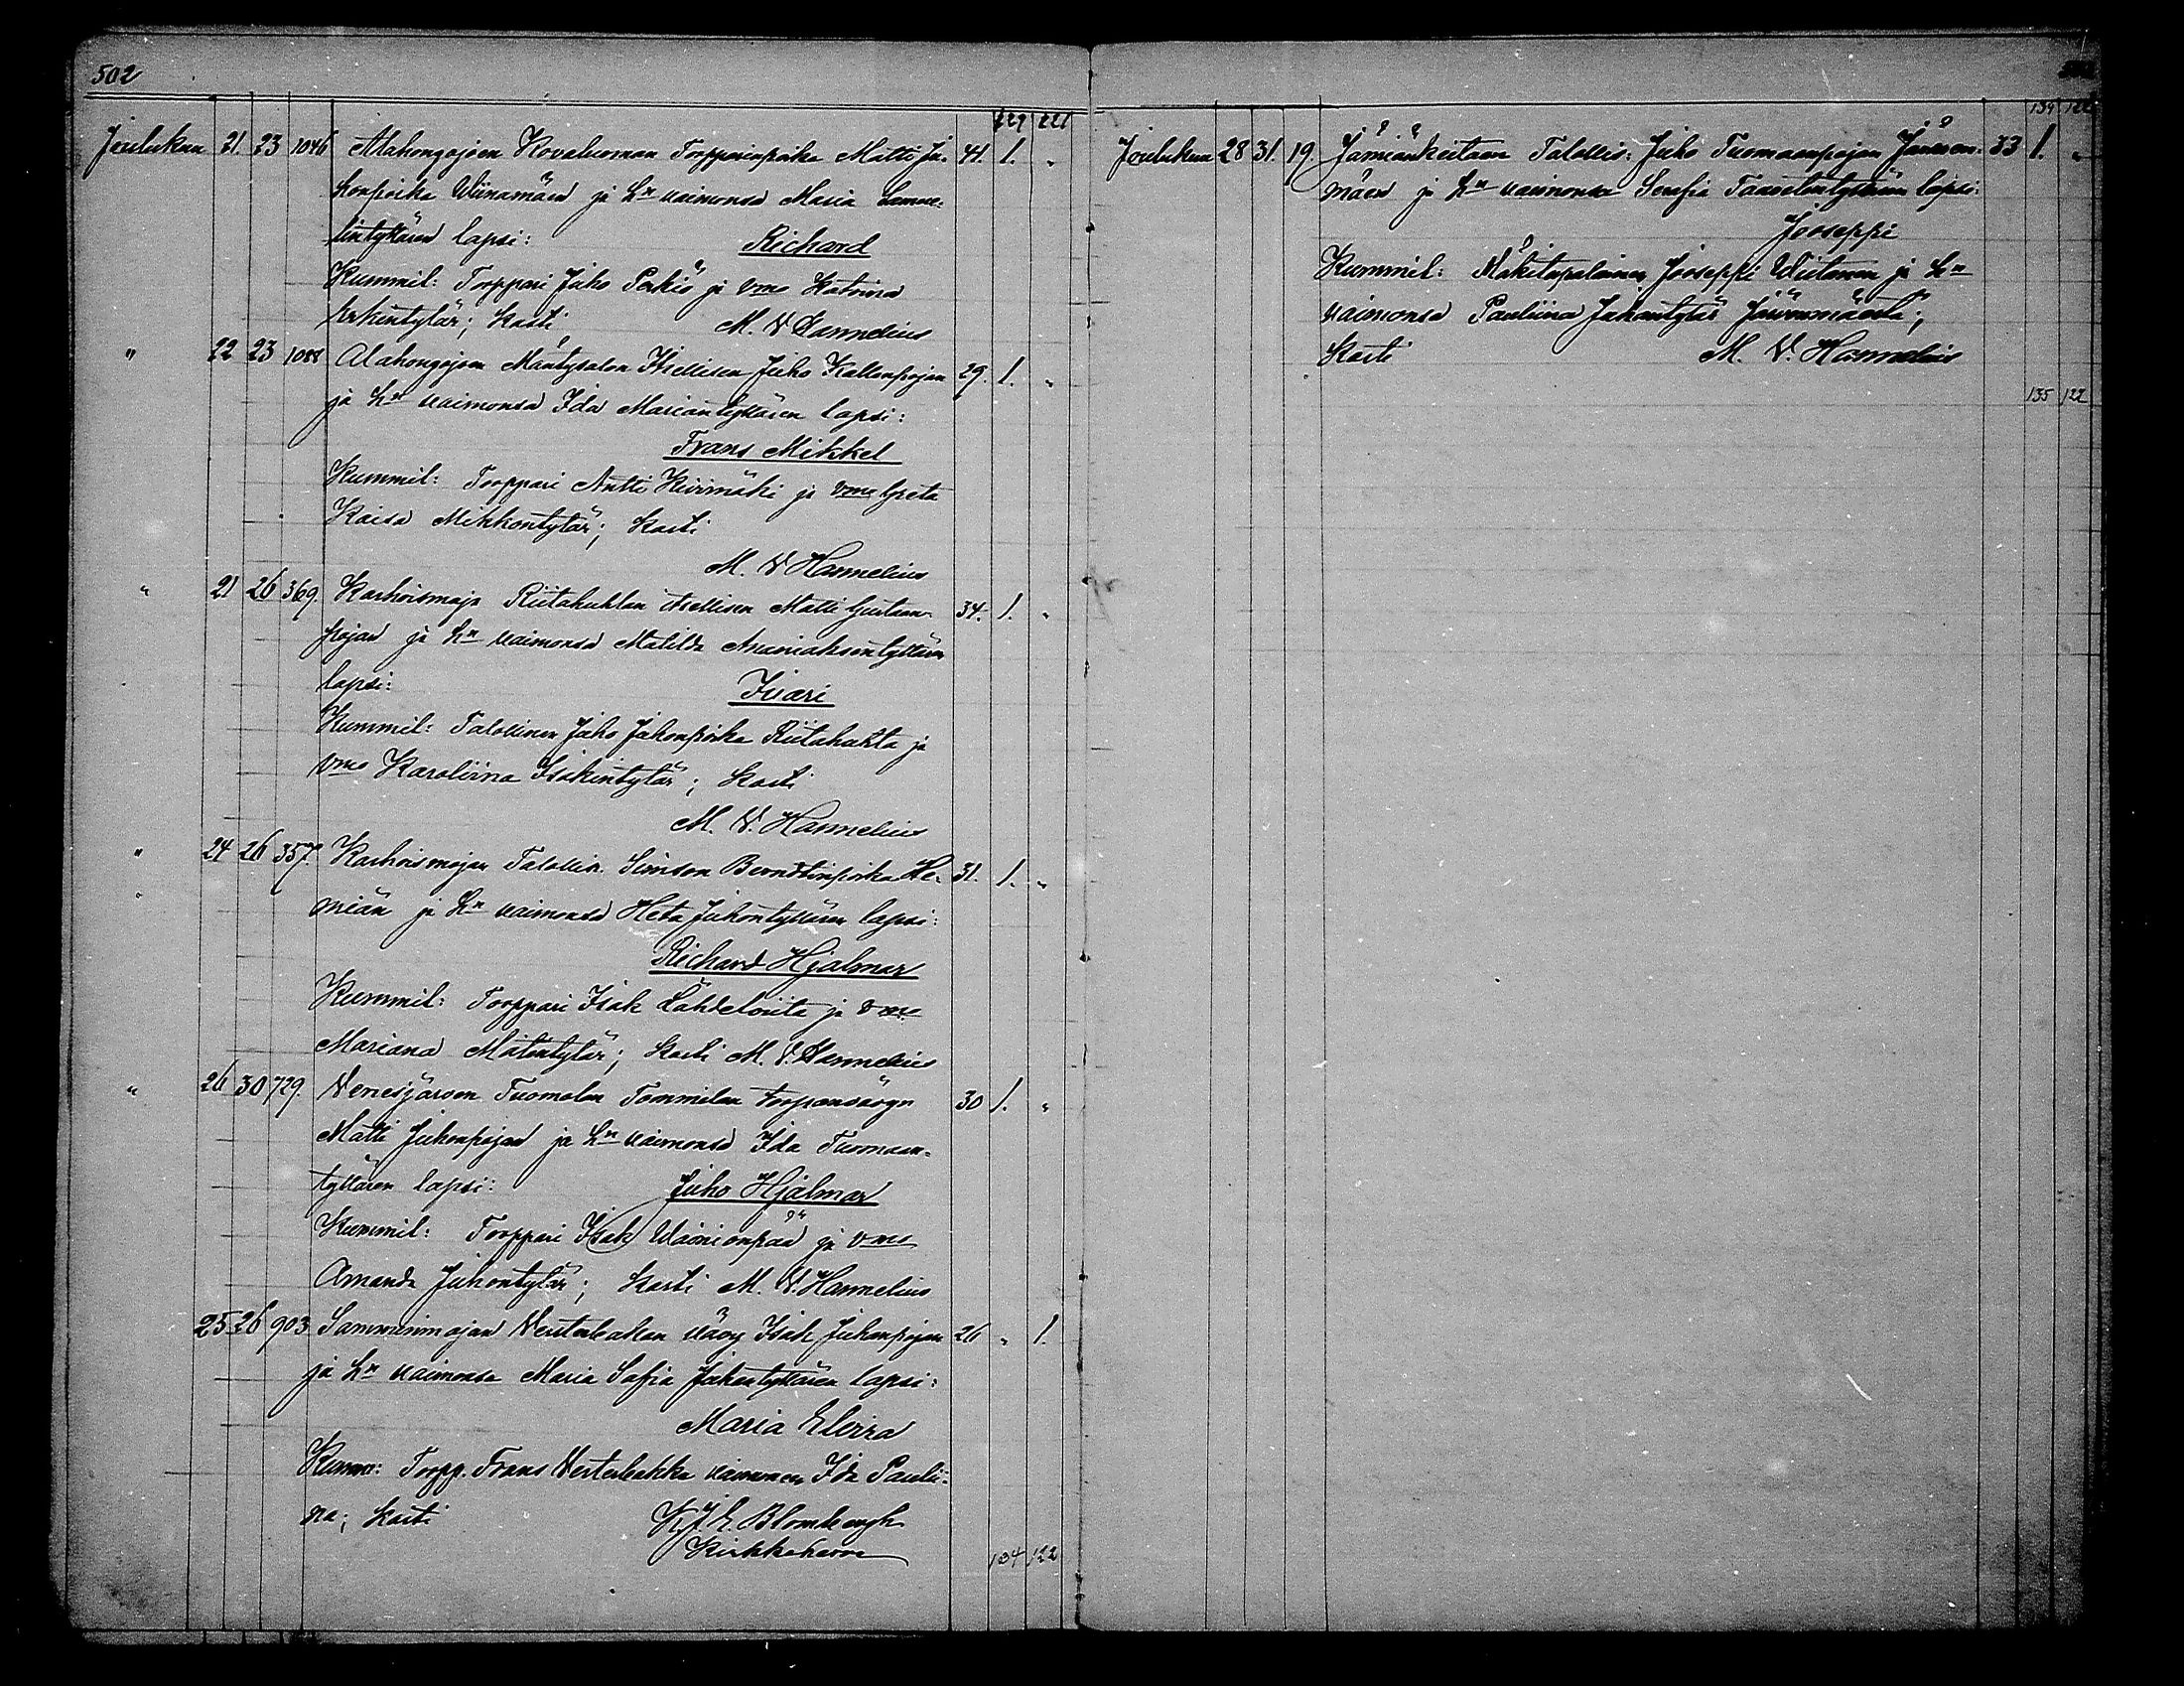 502
129 121
Joulukuu 21. 23 1046 Alahongojoen Kovaluoman Torpparinpoika Matti Ju- 41. 1. "
honpoika Viinamäen ja Hn vaimonsa Maria Samue-
lintyttären lapsi: Richard
Kummit: Torppari Juho Perkiö ja vmo Katriina
Erkintytär; Kasti M. V. Hannelius
" 22 23 1088 Alahongojoen Mäntysalon Itsellisen Juho Kallenpojan 29. 1. "
ja Hn vaimonsa Ida Mariantyttären lapsi:
Frans Mikkel
Kummit: Torppari Antti Kivimäki ja vmo Greta
Kaisa Mikkontytär; Kasti
M. V. Hannelius
" 21 26 369. Karhoismaja Riitahuhtan itsellisen Matti Gustaan- 34. 1. "
pojan ja Hn vaimonsa Matilda Ananiaksentyttären
lapsi: Iivari
Kummit: Talollinen Juho Juhonpoika Riitahuhta ja
vmo Karoliina Isakintytär; Kasti
M. V. Hannelius
" 24 26 357. Karhoismajan Talollis. Simson Berndtinpoika He- 31. 1. "
miän ja Hn vaimonsa Heta Juhontyttären lapsi:
Richard Hjalmar
Kummit: Torppari Isak Lähdeluita ja vmo
Mariana Matintytär; Kasti M. V. Hannelius
" 26 30 729. Venesjärven Tuomolan Tommilan torpanvävyn 30 1. "
Matti Juhonpojan ja Hn vaimonsa Ida Tuomaan-
tyttären lapsi: Juho Hjalmar
Kummit: Torppari Isak Väinionpää ja vmo
Amanda Juhontytär; Kasti M. V. Hannelius
25 26 903 Samminmajan Vesterbakan vävy Isak Juhonpojan 26 " 1.
ja Hn vaimonsa Maria Sofia Juhontyttären lapsi:
Maria Elvira
Kumm: Torpp. Frans Vesterbakka vaimonen Ida Paulii-
na; Kasti K. J. E. Blombergh
Kirkkoherra
134 122
134 122
Joulukuu 28 31. 19. Jämiänkeitaan Talollis: Juho Tuomaanpojan Järven- 33 1. "
mäen ja Hn vaimonsa Serafia Taavetintyttären lapsi:
Jooseppi
Kummit: Mäkitupalainen Jooseppi Viitanen ja Hn
vaimonsa Pauliina Juhontytär Järvenmäestä;
Kasti M. V. Hannelius
135 122